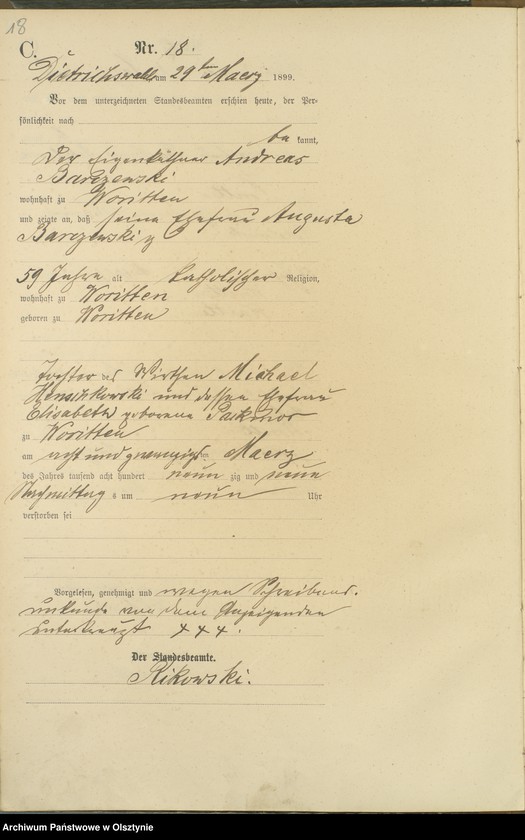 18
C.
Nr. 18.
Dietrichswalde am 29ten Maerz 1899.
Vor dem unterzeichneten Standesbeamten erschien heute, der Per-
sönlichkeit nach
be kannt,
Der Eigenkäthner Andreas
Barczewski
wohnhaft zu Woritten
und zeigte an, daß seine Ehefrau Augusta
Barczewski
59 Jahre alt katholischer Religion,
wohnhaft zu Woritten
geboren zu Woritten
Tochter des Wirthen Michael
und dessen Ehefrau
Elisabeth geborene
zu Woritten
am acht und zwanzigsten Maerz
des Jahres tausend acht hundert neun zig und neun
Nachmittag s um neun Uhr
verstorben sei
Vorgelesen, genehmigt und wegen Schreibens-
unkunde von dem Anzeigenden
unterkreuzt + + +.
Der Standesbeamte.
Rikowski.
Archiwum Państwowe w Olsztynie